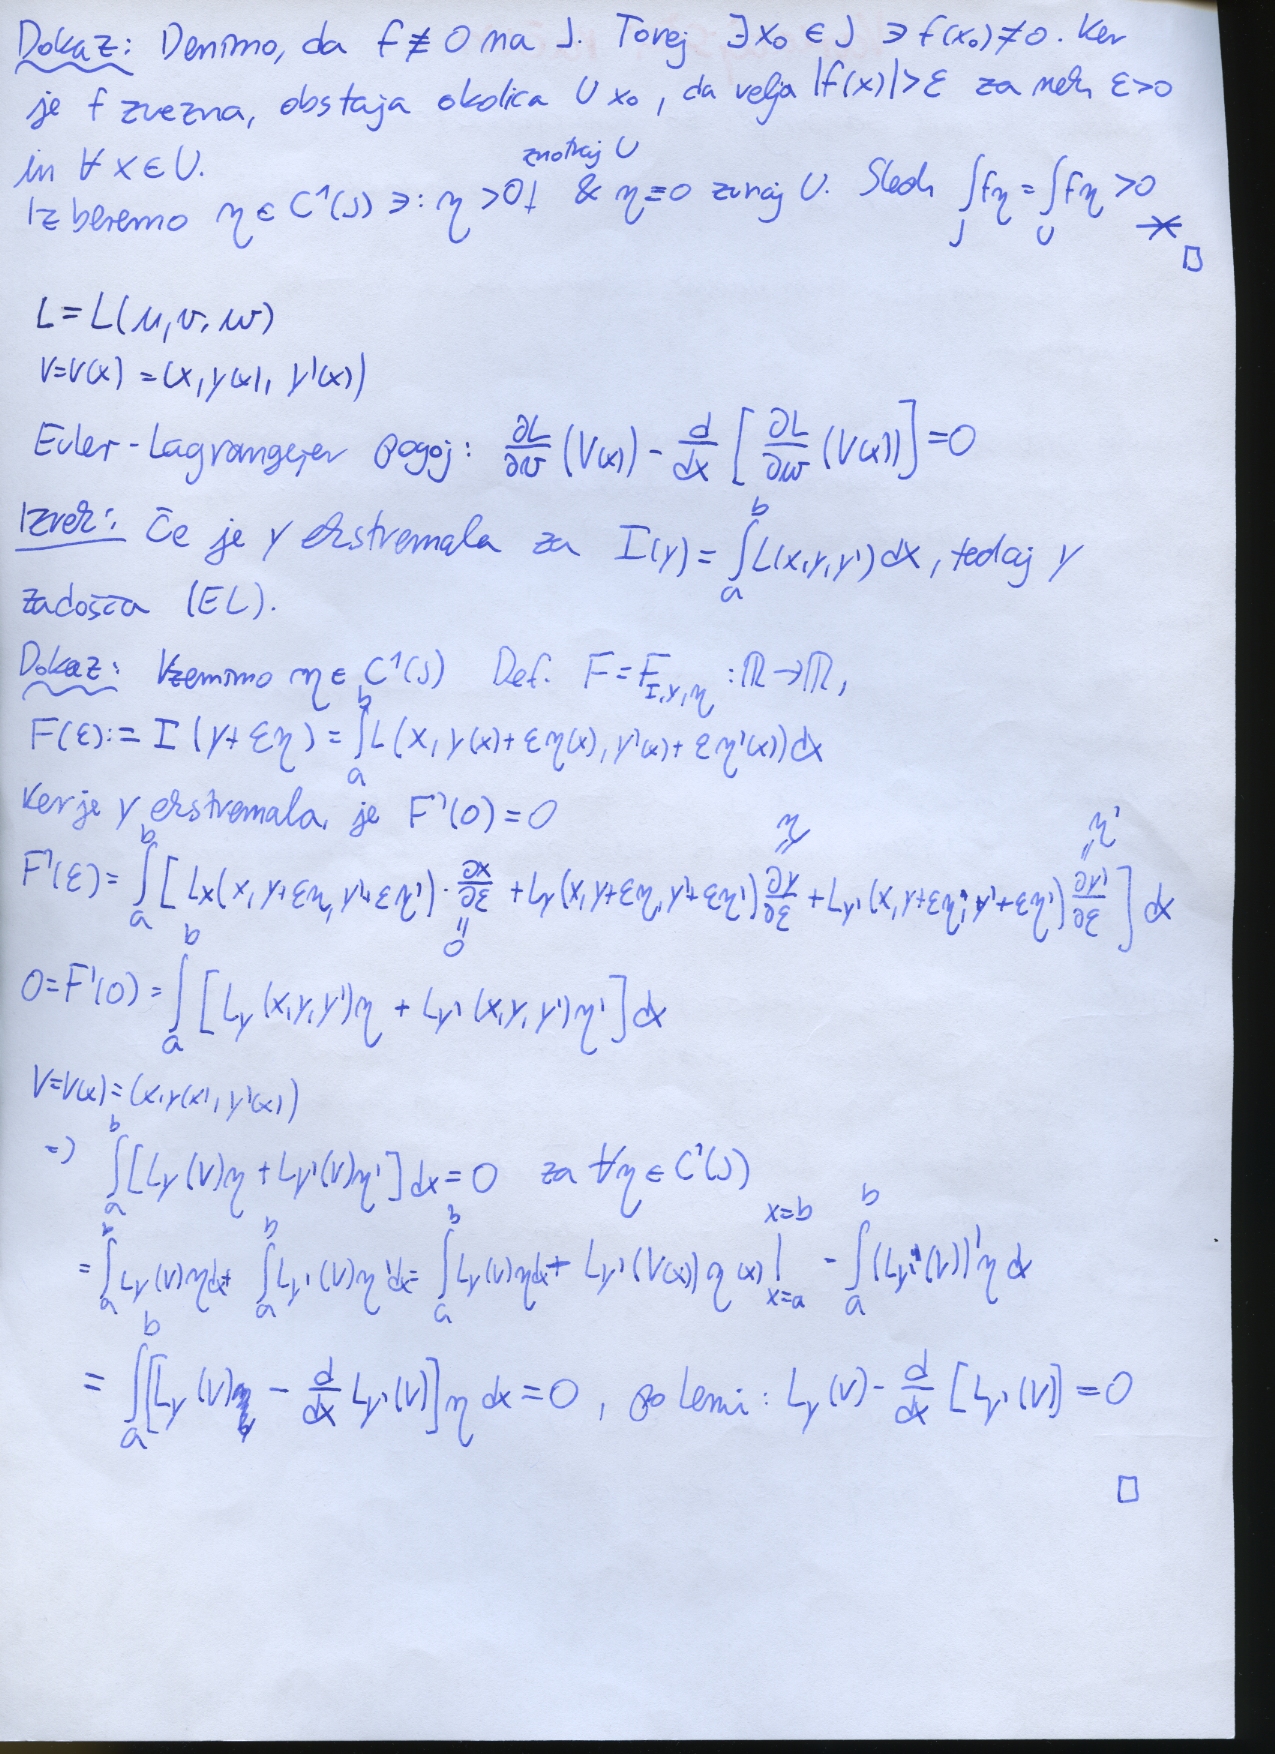 Dokaz: Denimo, da f ≢ 0 na J. Torej ∃ x₀ ∈ J ∋ f(x₀) ≠ 0. Ker
je f zvezna, obstaja okolica U x₀, da velja |f(x)| > ε za nek ε > 0
in ∀ x ∈ U.
znotraj U
Izberemo η ∈ C¹(J) ∋: η > 0 & η ≡ 0 zunaj U. Sledi ∫_J fη = ∫_U fη > 0
□
L = L(u, v, w)
V = V(x) = (x, y(x), y'(x))
Euler-Lagrangejev pogoj: ∂L/∂v (V(x)) - d/dx [ ∂L/∂w (V(x)) ] = 0
Izrek: Če je y ekstremala za I(y) = ∫_a^b L(x, y, y') dx, tedaj y
zadošča (EL).
Dokaz: Vzemimo η ∈ C¹(J) Def. F = F_{I,y,η} : ℝ → ℝ,
F(ε) := I(y + εη) = ∫_a^b L(x, y(x) + εη(x), y'(x) + εη'(x)) dx
Ker je y ekstremala, je F'(0) = 0
F'(ε) = ∫_a^b [ Lx(x, y+εη, y'+εη') · ∂x/∂ε + Ly(x, y+εη, y'+εη') ∂y/∂ε + Ly'(x, y+εη, y'+εη') ∂y'/∂ε ] dx
= 0 = η = η'
0 = F'(0) = ∫_a^b [ Ly(x, y, y')η + Ly'(x, y, y')η' ] dx
V = V(x) = (x, y(x), y'(x))
=> ∫_a^b [ Ly(V)η + Ly'(V)η' ] dx = 0 za ∀η ∈ C¹(J)
= ∫_a^b Ly(V)η dx + ∫_a^b Ly'(V)η' dx = ∫_a^b Ly(V)η dx + Ly'(V(x)) η(x) |_{x=a}^{x=b} - ∫_a^b (Ly'(V))'η dx
= ∫_a^b [ Ly(V) - d/dx Ly'(V) ] η dx = 0, po lemi: Ly(V) - d/dx [ Ly'(V) ] = 0
□